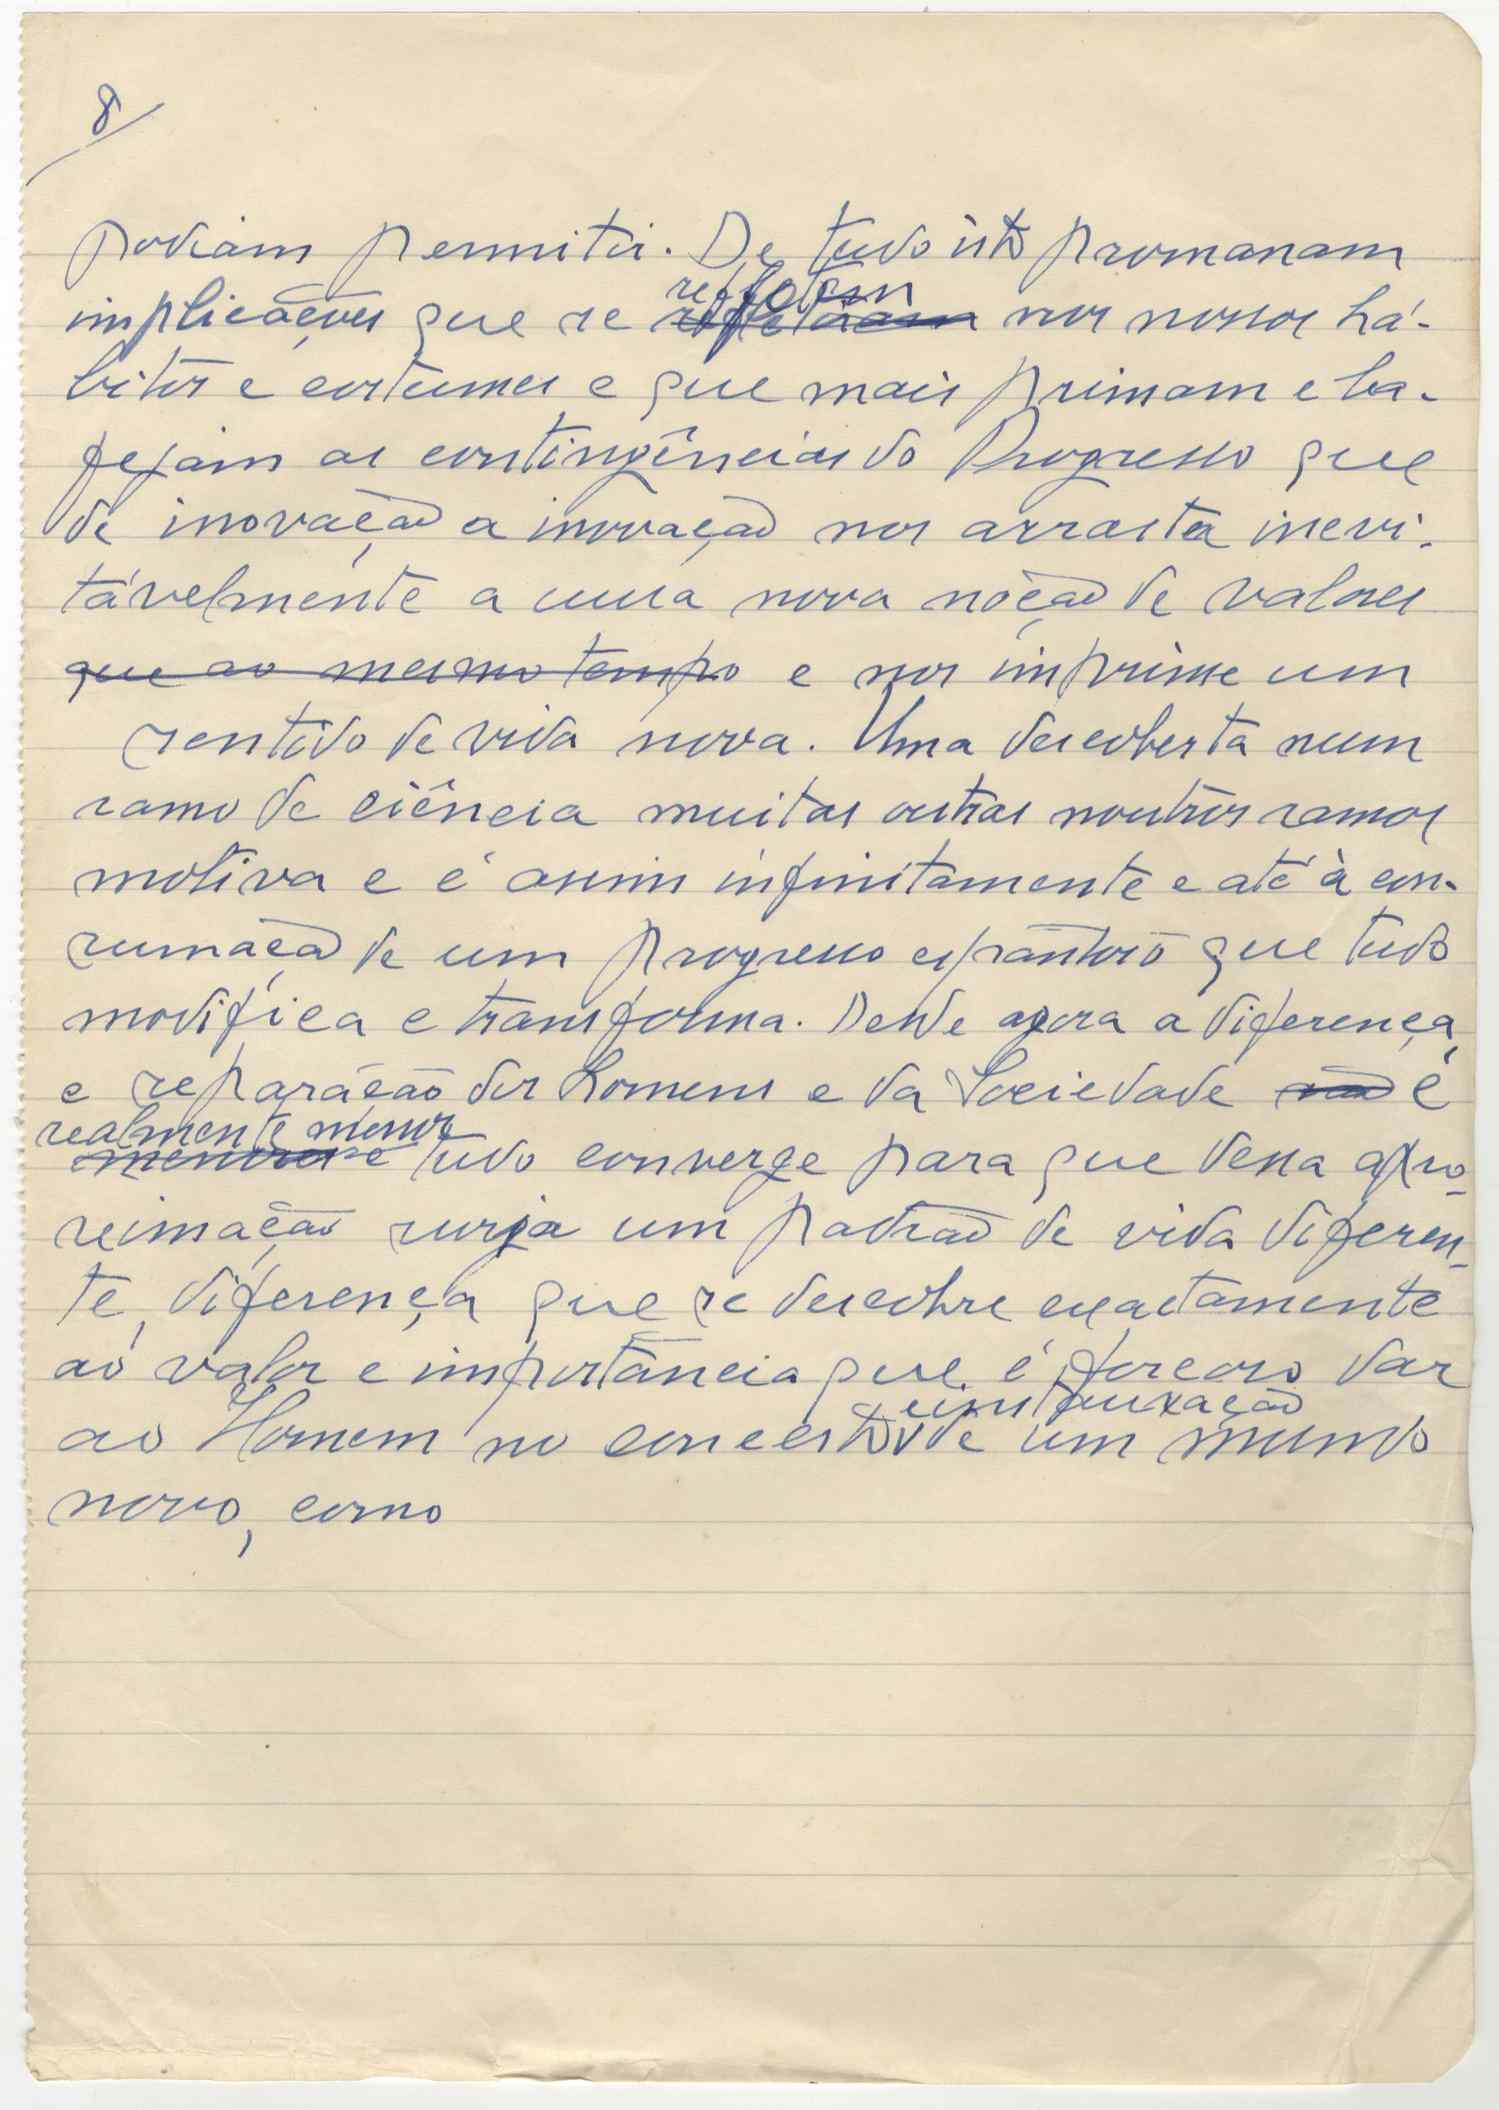 8/
podiam permitir. De tudo isto promanam
reflectem
implicações que se nos nossos há-
bitos e costumes e que mais primam e ba-
fejam as contingências do Progresso que
de inovação a inovação nos arrasta inevi-
távelmente a uma nova noção de valores
que ao mesmo tempo e nos imprime um
sentido de vida nova. Uma descoberta num
ramo de ciência muitas outras noutros ramos
motiva e é assim infinitamente e até à con-
sumação de um progresso espantoso que tudo
modifica e transforma. Desde agora a diferença
e separação dos homens e da Sociedade não é
realmente menor
menor e tudo converge para que dessa apro-
ximação surja um padrão de vida diferen-
te, diferença que se descobre exactamente
ao valor e importância que é forçoso dar
ao Homem no concerto de um mundo
novo, como